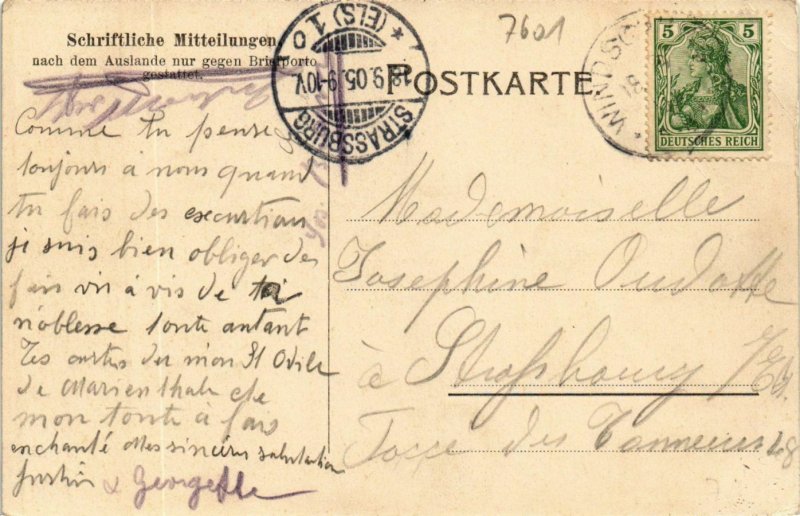 Schriftliche Mitteilungen
nach dem Auslande nur gegen Briefporto
gestattet.
7601
STRASSBURG
* (ELS) 1 o
18.9.05.9-10V.
POSTKARTE
WINDSC
18
5 5
DEUTSCHES REICH
Comme tu pense
toujours a nous quand
tu fais des excurtion
je suis bien obliger de
fair vis à vis de toi
noblesse toute autant
Tes cartes du mon St Odile
de Marienthale etc
mon toute à fais
enchanté Mes sincères salutation
& Georgette
Mademoiselle
Josephine Oudotte
à Strassbourg /Els.
Fosse des Tanneurs 28